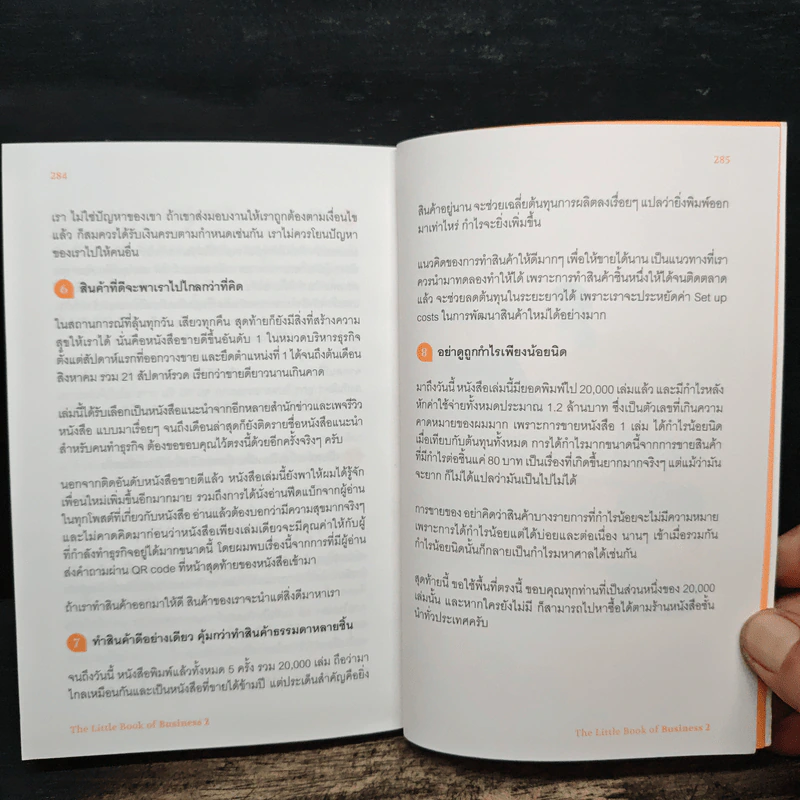 284
เรา ไม่ใช่ปัญหาของเขา ถ้าเขาส่งมอบงานให้เราถูกต้องตามเงื่อนไข
แล้ว ก็สมควรได้รับเงินครบตามกำหนดเช่นกัน เราไม่ควรโยนปัญหา
ของเราไปให้คนอื่น
6 สินค้าที่ดีจะพาเราไปไกลกว่าที่คิด
ในสถานการณ์ที่ลุ้นทุกวัน เสียวทุกคืน สุดท้ายก็ยังมีสิ่งที่สร้างความ
สุขให้เราได้ นั่นคือหนังสือขายดีขึ้นอันดับ 1 ในหมวดบริหารธุรกิจ
ตั้งแต่สัปดาห์แรกที่ออกวางขาย และยึดตำแหน่งที่ 1 ได้จนถึงต้นเดือน
สิงหาคม รวม 21 สัปดาห์รวด เรียกว่าขายดียาวนานเกินคาด
เล่มนี้ได้รับเลือกเป็นหนังสือแนะนำจากอีกหลายสำนักข่าวและเพจรีวิว
หนังสือ แบบมาเรื่อยๆ จนถึงเดือนล่าสุดก็ยังติดรายชื่อหนังสือแนะนำ
สำหรับคนทำธุรกิจ ต้องขอขอบคุณไว้ตรงนี้ด้วยอีกครั้งจริงๆ ครับ
นอกจากติดอันดับหนังสือขายดีแล้ว หนังสือเล่มนี้ยังพาให้ผมได้รู้จัก
เพื่อนใหม่เพิ่มขึ้นอีกมากมาย รวมถึงการได้นั่งอ่านฟีดแบ็กจากผู้อ่าน
ในทุกโพสต์ที่เกี่ยวกับหนังสือ อ่านแล้วต้องบอกว่ามีความสุขมากจริงๆ
และไม่คาดคิดมาก่อนว่าหนังสือเพียงเล่มเดียวจะมีคุณค่าให้กับผู้
ที่กำลังทำธุรกิจอยู่ได้มากขนาดนี้ โดยผมพบเรื่องนี้จากการที่มีผู้อ่าน
ส่งคำถามผ่าน QR code ที่หน้าสุดท้ายของหนังสือเข้ามา
ถ้าเราทำสินค้าออกมาให้ดี สินค้าของเราจะนำแต่สิ่งดีมาหาเรา
7 ทำสินค้าดีอย่างเดียว คุ้มกว่าทำสินค้าธรรมดาหลายชิ้น
จนถึงวันนี้ หนังสือพิมพ์แล้วทั้งหมด 5 ครั้ง รวม 20,000 เล่ม ถือว่ามา
ไกลเหมือนกันและเป็นหนังสือที่ขายได้ข้ามปี แต่ประเด็นสำคัญคือยิ่ง
The Little Book of Business 2
285
สินค้าอยู่นาน จะช่วยเฉลี่ยต้นทุนการผลิตลงเรื่อยๆ แปลว่ายิ่งพิมพ์ออก
มาเท่าไหร่ กำไรจะยิ่งเพิ่มขึ้น
แนวคิดของการทำสินค้าให้ดีมากๆ เพื่อให้ขายได้นาน เป็นแนวทางที่เรา
ควรนำมาทดลองทำให้ได้ เพราะการทำสินค้าชิ้นหนึ่งให้ได้จนติดตลาด
แล้ว จะช่วยลดต้นทุนในระยะยาวได้ เพราะเราจะประหยัดค่า Set up
costs ในการพัฒนาสินค้าใหม่ได้อย่างมาก
8 อย่าดูถูกกำไรเพียงน้อยนิด
มาถึงวันนี้ หนังสือเล่มนี้มียอดพิมพ์ไป 20,000 เล่มแล้ว และมีกำไรหลัง
หักค่าใช้จ่ายทั้งหมดประมาณ 1.2 ล้านบาท ซึ่งเป็นตัวเลขที่เกินความ
คาดหมายของผมมาก เพราะการขายหนังสือ 1 เล่ม ได้กำไรน้อยนิด
เมื่อเทียบกับต้นทุนทั้งหมด การได้กำไรมากขนาดนี้จากการขายสินค้า
ที่มีกำไรต่อชิ้นแค่ 80 บาท เป็นเรื่องที่เกิดขึ้นยากมากจริงๆ แต่แม้ว่ามัน
จะยาก ก็ไม่ได้แปลว่ามันเป็นไปไม่ได้
การขายของ อย่าคิดว่าสินค้าบางรายการที่กำไรน้อยจะไม่มีความหมาย
เพราะการได้กำไรน้อยแต่ได้บ่อยและต่อเนื่อง นานๆ เข้าเมื่อรวมกัน
กำไรน้อยนิดนั้นก็กลายเป็นกำไรมหาศาลได้เช่นกัน
สุดท้ายนี้ ขอใช้พื้นที่ตรงนี้ ขอบคุณทุกท่านที่เป็นส่วนหนึ่งของ 20,000
เล่มนั้น และหากใครยังไม่มี ก็สามารถไปหาซื้อได้ตามร้านหนังสือชั้น
นำทั่วประเทศครับ
The Little Book of Business 2